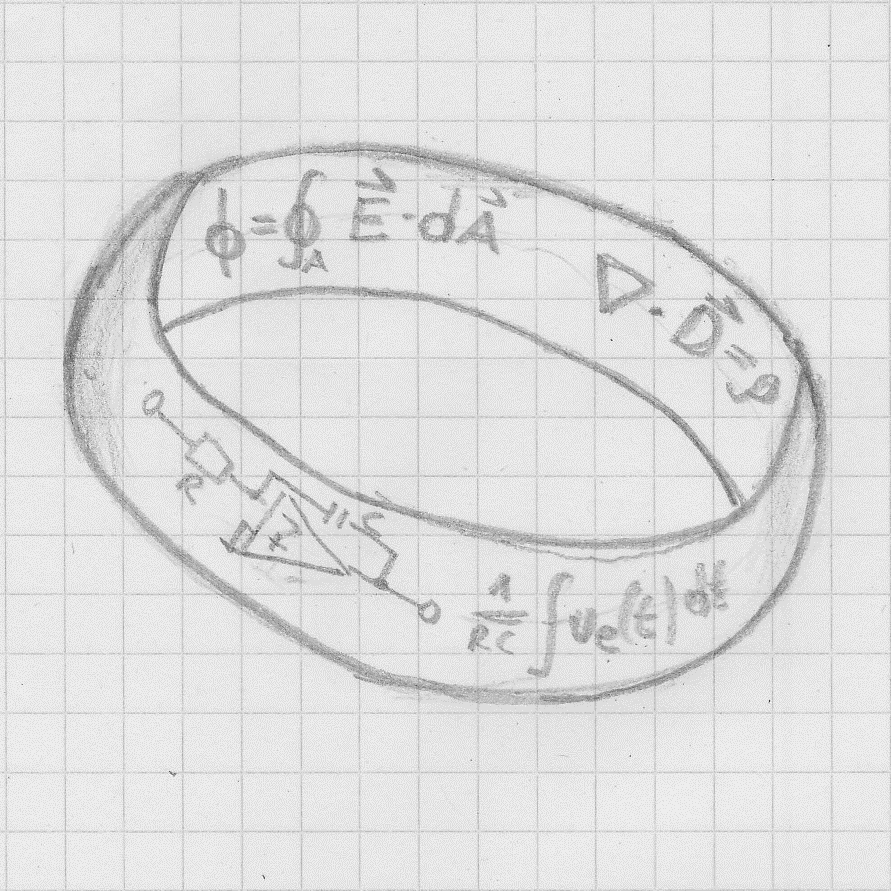 ϕ=∮_A E⃗·dA⃗
∇·D⃗=ρ
R
C
1/RC ∫u_e(t)dt